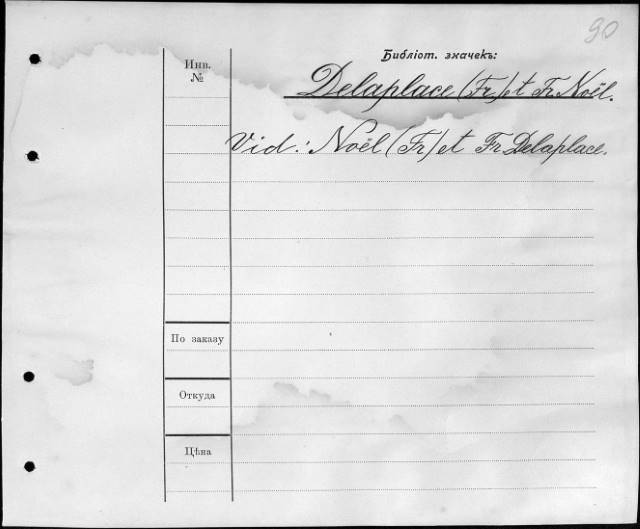 90
Библіот. значекъ:
Инв.
№
Delaplace (Fr) et Fr. Noël.
Vid.: Noël (Fr) et Fr. Delaplace.
По заказу
Откуда
Цѣна